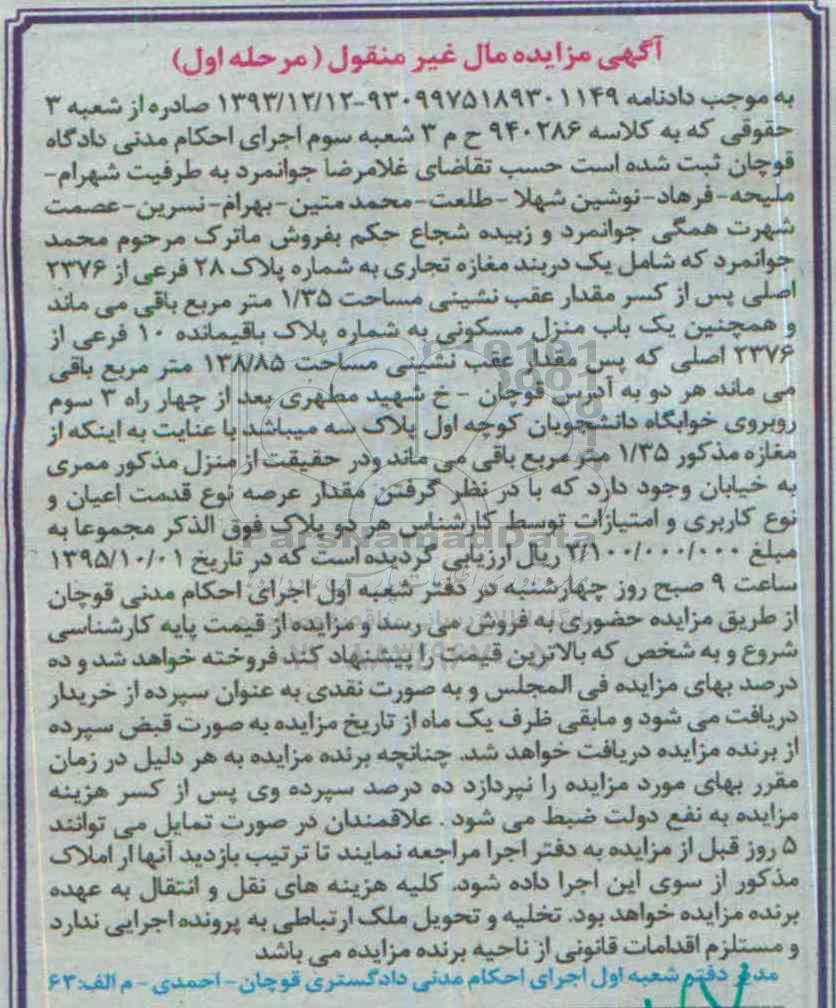 آگهی مزایده مال غیر منقول (مرحله اول)
به موجب دادنامه ۹۳۰۹۹۷۵۱۸۹۳۰۱۱۴۹-۱۳۹۳/۱۲/۱۲ صادره از شعبه ۳
حقوقی که به کلاسه ۹۴۰۲۸۶ ح م ۳ شعبه سوم اجرای احکام مدنی دادگاه
قوچان ثبت شده است حسب تقاضای غلامرضا جوانمرد به طرفیت شهرام-
ملیحه-فرهاد-نوشین شهلا -طلعت-محمد متین-بهرام-نسرین-عصمت
شهرت همگی جوانمرد و زبیده شجاع حکم بفروش ماترک مرحوم محمد
جوانمرد که شامل یک دربند مغازه تجاری به شماره پلاک ۲۸ فرعی از ۲۳۷۶
اصلی پس از کسر مقدار عقب نشینی مساحت ۱/۳۵ متر مربع باقی می ماند
و همچنین یک باب منزل مسکونی به شماره پلاک باقیمانده ۱۰ فرعی از
۲۳۷۶ اصلی که پس مقدار عقب نشینی مساحت ۱۳۸/۸۵ متر مربع باقی
می ماند هر دو به آدرس قوچان - خ شهید مطهری بعد از چهار راه ۳ سوم
روبروی خوابگاه دانشجویان کوچه اول پلاک سه میباشد با عنایت به اینکه از
مغازه مذکور ۱/۳۵ متر مربع باقی می ماند ودر حقیقت از منزل مذکور ممری
به خیابان وجود دارد که با در نظر گرفتن مقدار عرصه نوع قدمت اعیان و
نوع کاربری و امتیازات توسط کارشناس هر دو پلاک فوق الذکر مجموعا به
مبلغ ۳/۱۰۰/۰۰۰/۰۰۰ ریال ارزیابی گردیده است که در تاریخ ۱۳۹۵/۱۰/۰۱
ساعت ۹ صبح روز چهارشنبه در دفتر شعبه اول اجرای احکام مدنی قوچان
از طریق مزایده حضوری به فروش می رسد و مزایده از قیمت پایه کارشناسی
شروع و به شخص که بالاترین قیمت را پیشنهاد کند فروخته خواهد شد و ده
درصد بهای مزایده فی المجلس و به صورت نقدی به عنوان سپرده از خریدار
دریافت می شود و مابقی ظرف یک ماه از تاریخ مزایده به صورت قبض سپرده
از برنده مزایده دریافت خواهد شد. چنانچه برنده مزایده به هر دلیل در زمان
مقرر بهای مورد مزایده را نپردازد ده درصد سپرده وی پس از کسر هزینه
مزایده به نفع دولت ضبط می شود . علاقمندان در صورت تمایل می توانند
۵ روز قبل از مزایده به دفتر اجرا مراجعه نمایند تا ترتیب بازدید آنها از املاک
مذکور از سوی این اجرا داده شود. کلیه هزینه های نقل و انتقال به عهده
برنده مزایده خواهد بود. تخلیه و تحویل ملک ارتباطی به پرونده اجرایی ندارد
و مستلزم اقدامات قانونی از ناحیه برنده مزایده می باشد
مدیر دفتر شعبه اول اجرای احکام مدنی دادگستری قوچان- احمدی - م الف:۶۳
ParsNamadData